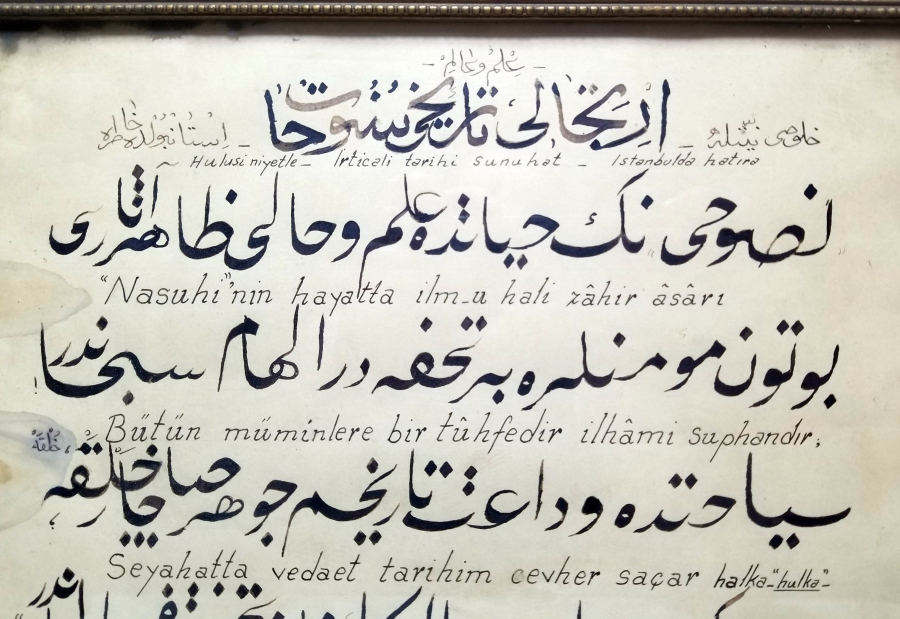 - عِلْمُ وعَالِمْ -
ارتحالی تاریخی سنوحات
خلوصی نیتله - - استانبولده خاطره
Hulusi niyetle - Irticali tarihi sunuhat - Istanbulda hatıra
„نصوحی“ نك حیاتده علم و حالی ظاهر آثاری
"Nasuhi"nin hayatta ilm-u hali zâhir âsârı
بوتون مومنلره بر تحفه در الهام سبحاندر
Bütün müminlere bir tûhfedir ilhâmi suphandır;
سیاحتده وداعت تاریخم جوهر صاچار خلقه
خُلْقَه
Seyahatta vedaet tarihim cevher saçar halka-"hulka"-